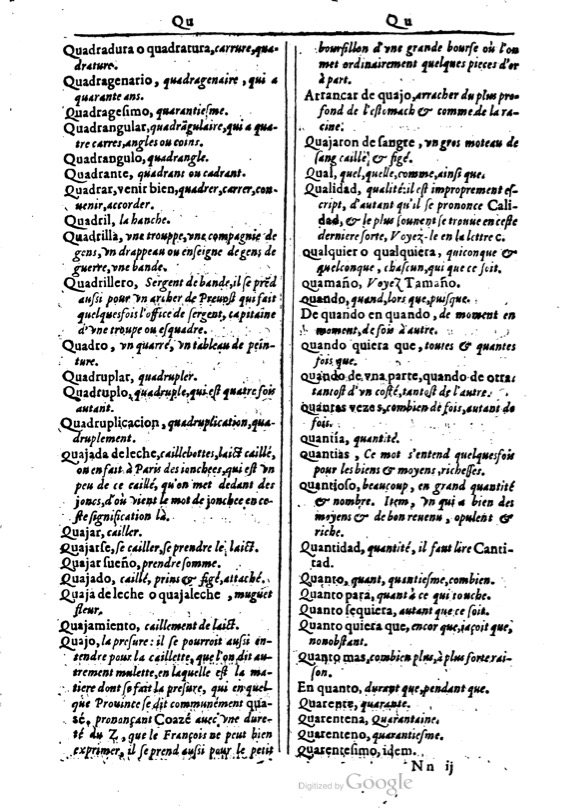 Qu
Qu
Quadradura o quadratura, carrure, qua-
drature.
Quadragenario, quadragenaire, qui a
quarante ans.
Quadragesimo, quarantiesme.
Quadrangular, quadrãgulaire, qui a qua-
tre carres, angles ou coins.
Quadrangulo, quadrangle.
Quadrante, quadrant ou cadrant.
Quadrar, venir bien, quadrer, carrer, con-
uenir, accorder.
Quadril, la hanche.
Quadrilla, vne trouppe, vne compagnie de
gens, vn drappeau ou enseigne de gens de
guerre, vne bande.
Quadrillero, Sergent de bande, il se prẽd
aussi pour vn archer de Preuost qui fait
quelquesfois l'office de sergent, capitaine
d'vne troupe ou esquadre.
Quadro, vn quarré, vn tableau de pein-
ture.
Quadruplar, quadrupler.
Quadruplo, quadruple, qui est quatre fois
autant.
Quadruplicacion, quadruplication, qua-
druplement.
Quajada de leche, caillebottes, laict caillé,
on en fait à Paris des ionchees, qui est vn
peu de ce caillé, qu'on met dedant des
joncs, d'où vient le mot de jonchee en ce-
ste signification là.
Quajar, cailler.
Quajarse, se cailler, se prendre le laict.
Quajar sueño, prendre somme.
Quajado, caillé, prins & figé, attaché.
Quaja de leche o quajaleche, muguet
fleur.
Quajamiento, caillement de laict.
Quajo, la presure: il se pourroit aussi en-
tendre pour la caillette, que l'on dit au-
trement mulette, en laquelle est la ma-
tiere dont so fait la presure, qui en quel-
que Prouince se dit communément qua-
sé, prononçant Coazé auec vne dure-
té du Z, que le François ne peut bien
exprimer, il se prend aussi pour le petit
boursillon d'vne grande bourse où l'on
met ordinairement quelques pieces d'or
à part.
Arrancar de quajo, arracher du plus pro-
fond de l'estomach & comme de la ra-
cine.
Quajaron de sangre, vn gros moteau de
sang caillé & figé.
Qual, quel, quelle, comme, ainsi que.
Qualidad, qualité: il est improprement es-
cript, d'autant qu'il se prononce Cali-
dad, & le plus souuent se trouue en ceste
derniere sorte, Voyez-le en la lettre C.
Qualquier o qualquiera, quiconque &
quelconque, chascun, qui que ce soit.
Quamaño, Voyez Tamaño.
Quando, quand, lors que, puisque.
De quando en quando, de moment en
moment, de fois à autre.
Quando quiera que, toutes & quantes
fois que.
Quando de vna parte, quando de otra:
tantost d'vn costé, tantost de l'autre.
Quantas vezes, combien de fois, autant de
fois.
Quantia, quantité.
Quantias, Ce mot s'entend quelquesfois
pour les biens & moyens, richesses.
Quantioso, beaucoup, en grand quantité
& nombre. Item, vn qui a bien des
moyens & de bon reuenu, opulent &
riche.
Quantidad, quantité, il faut lire Canti-
dad.
Quanto, quant, quantiesme, combien.
Quanto para, quant à ce qui touche.
Quanto sequiera, autant que ce soit.
Quanto quiera que, encor que, jaçoit que,
nonobstant.
Quanto mas, combien plus, à plus forte rai-
son.
En quanto, durant que, pendant que.
Quarente, quarante.
Quarentena, Quarantaine.
Quarenteno, quarantiesme.
Quarentesimo, idem.
Nn ij
Digitized by Google